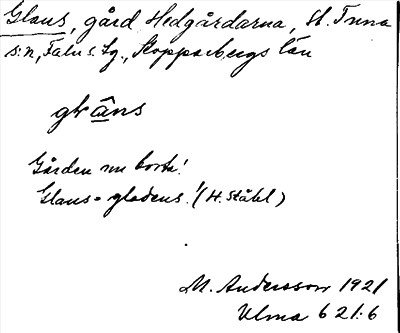 Glans, gård, Hedgårdarna, St. Tuna
s:n, Falu s. lg., Kopparbergs län
glâns
Gården nu borta!
Glans = gladens! (H. Ståhl)
M. Andersson 1921
Ulma 621:6